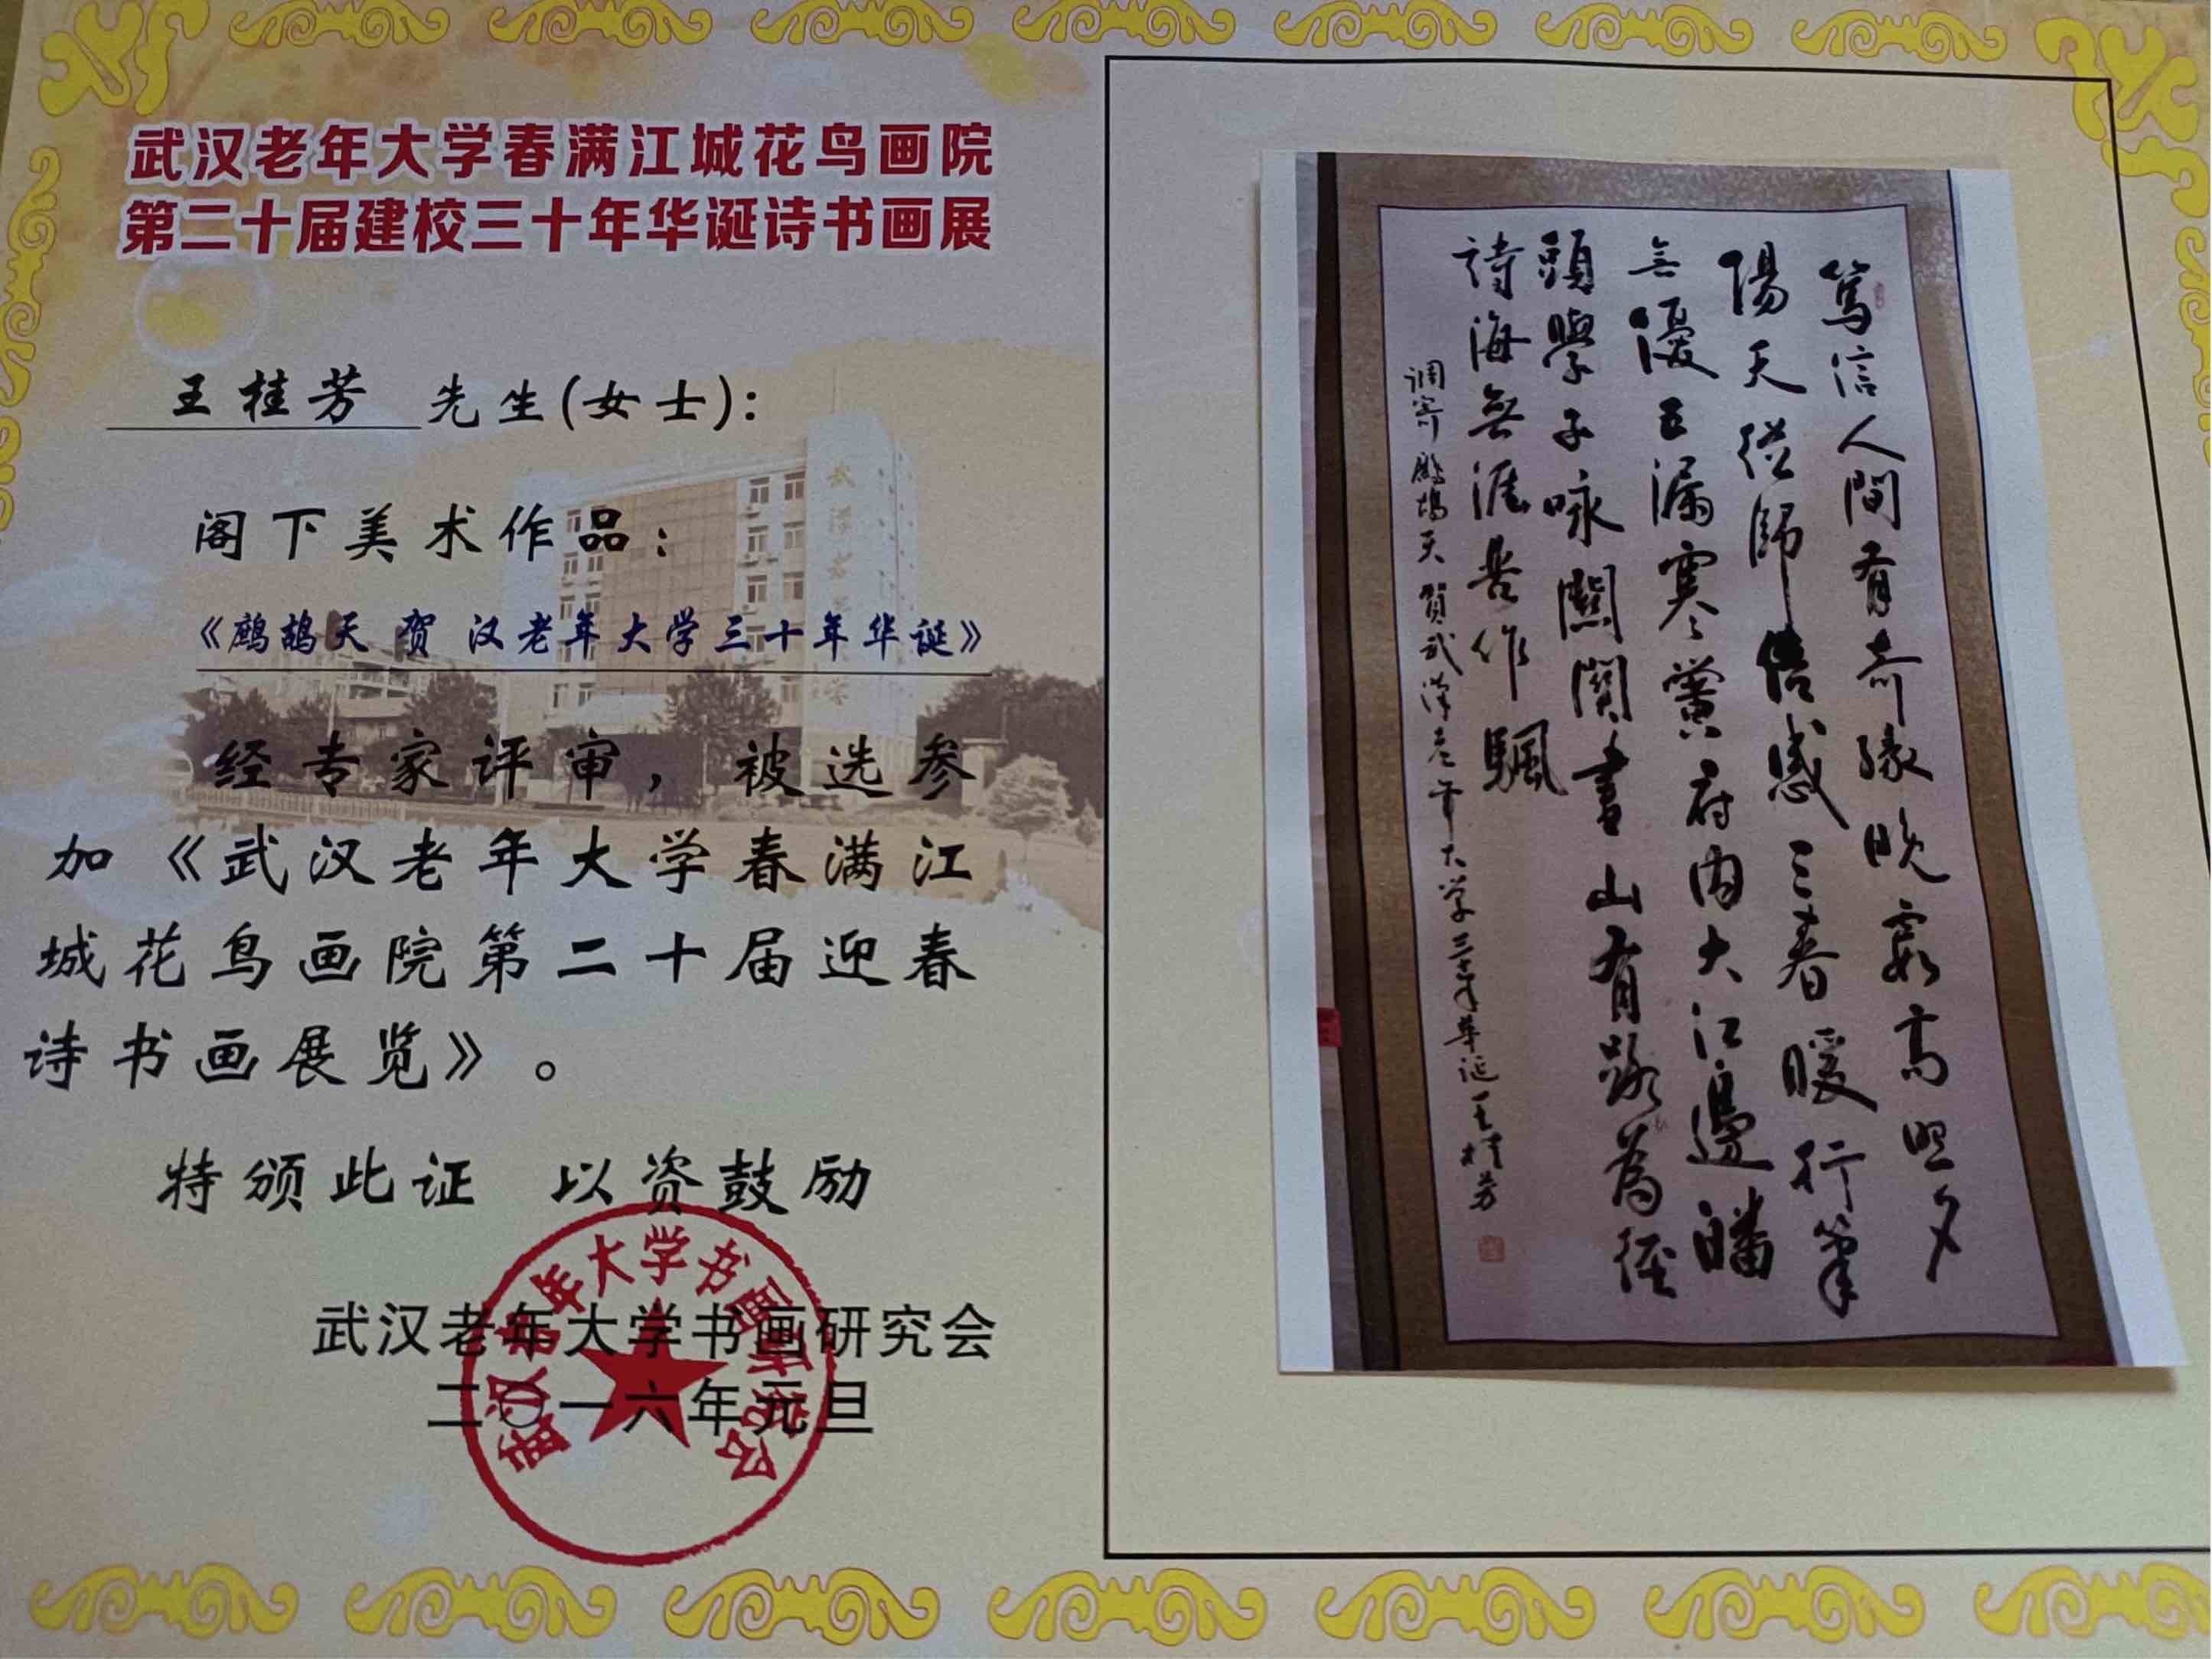 武汉老年大学春满江城花鸟画院
第二十届建校三十年华诞诗书画展
王桂芳 先生(女士):
阁下美术作品:
《鹧鸪天 贺 汉老年大学三十年华诞》
经专家评审,被选参
加《武汉老年大学春满江
城花鸟画院第二十届迎春
诗书画展览》。
特颁此证 以资鼓励
武汉老年大学书画研究会
二〇一六年元旦
武汉老年大学书画研究会
篤信人間有奇緣晚霞高照夕
陽天從師倍感三春暖行筆
無憂五漏寒黌府內大江邊皤
頭學子咏關關書山有路為徑
詩海無涯岩作颿
调寄鹧鸪天 賀武漢老年大学三十年華诞 王桂芳